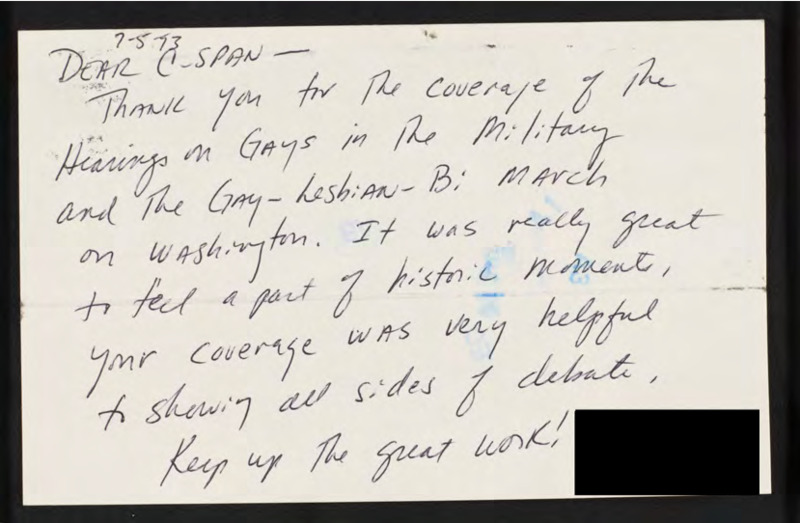 7-5-93
DEAR C-SPAN —
THANK you for The coverage of The
Hearings on GAYS in The Military
and The GAY-LesbiAN-Bi MARCH
on WAShington. It was really great
to feel a part of historic moments,
your coverage WAS very helpful
to showing all sides of debate,
Keep up The great work!